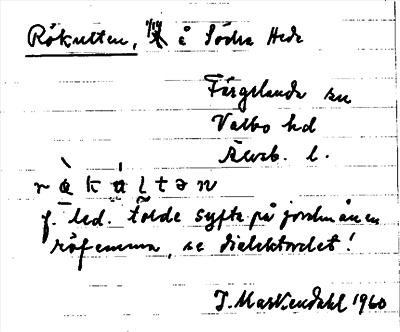 Rökutten, 1/14 å Södra Hede
Färgelanda sn
Valbo hd
Älvsb. l.
r ö k u l t ə n
f. led. torde syfta på jordmånen
röjemma, se dialektordet!
I. Markendahl 1960